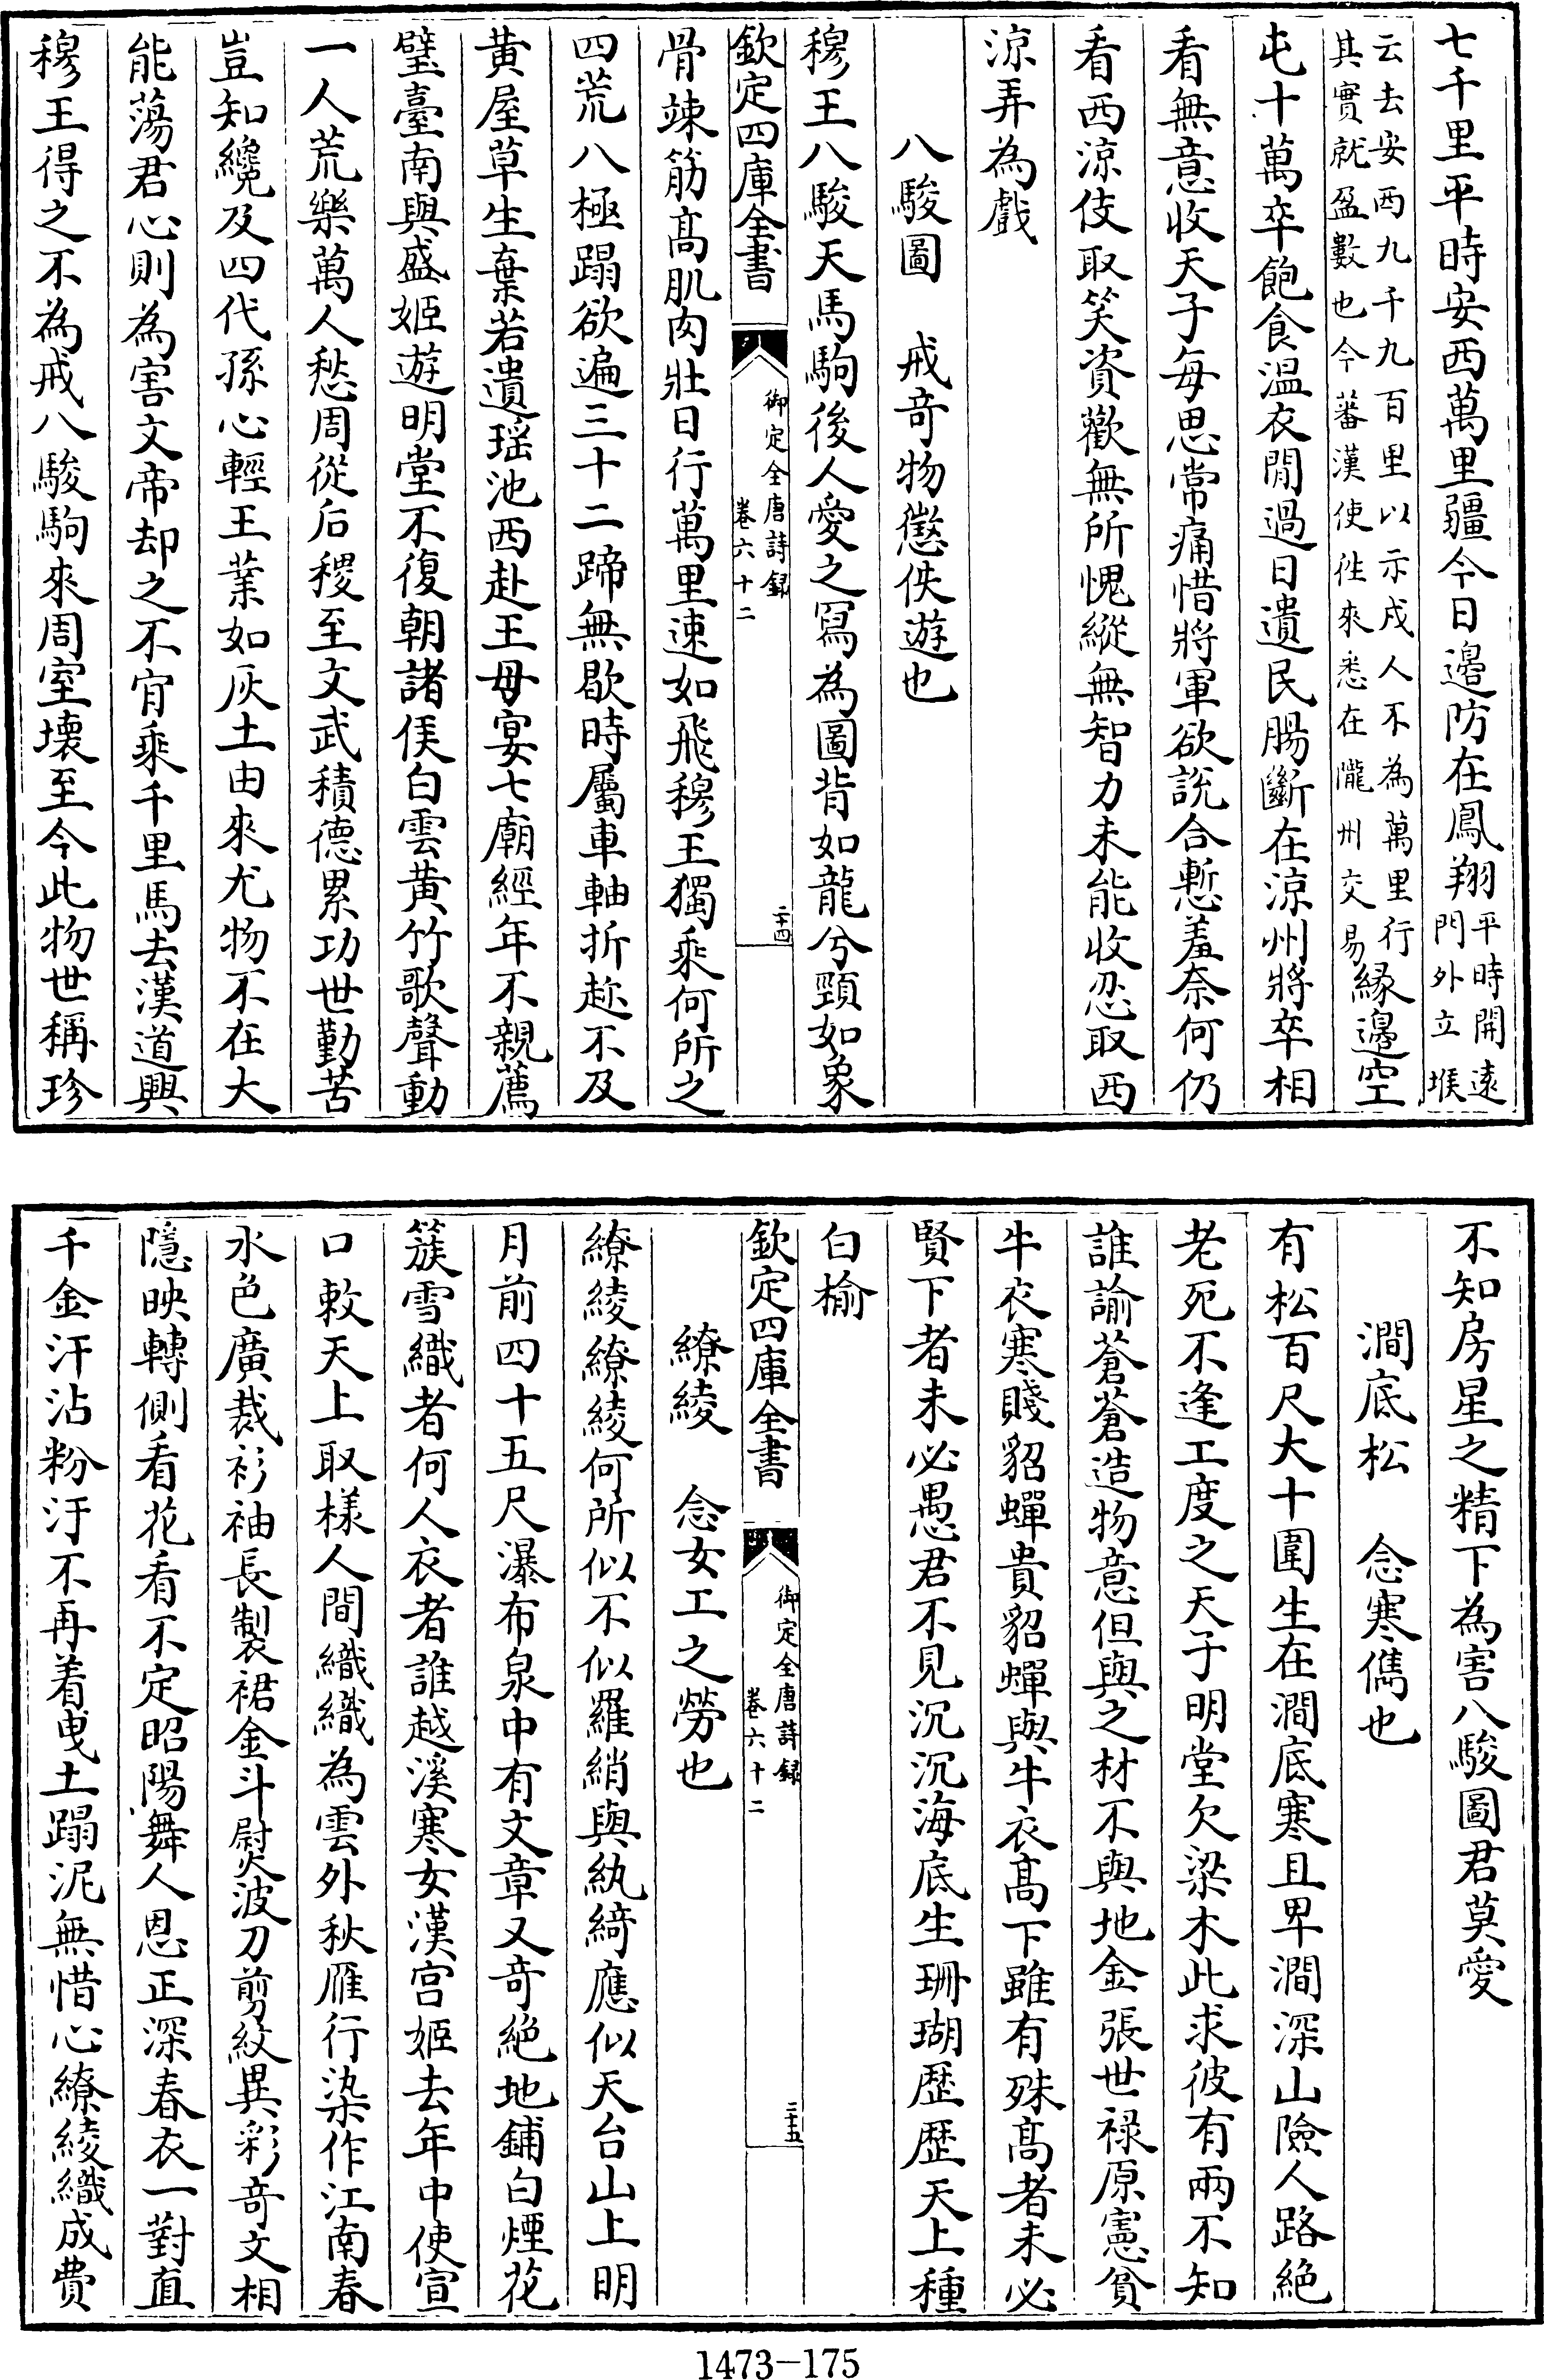 七千里平時安西萬里疆今日邊防在鳳翔平時開遠門外立堠
云去安西九千九百里以示戍人不為萬里行其實就盈數也今蕃漢使徃來悉在隴州交易緣邊空
屯十萬卒飽食溫衣閒過日遺民腸斷在涼州將卒相
看無意收天子每思常痛惜將軍欲說合慙羞奈何仍
看西涼伎取笑資歡無所愧縱無智力未能收忍取西
涼弄為戲
八駿圖　戒竒物懲佚遊也
穆王八駿天馬駒後人愛之冩為圖背如龍兮頸如象
欽定四庫全書　御定全唐詩錄　卷六十二　二十四
骨竦筋髙肌肉壯日行萬里速如飛穆王獨乘何所之
四荒八極蹋欲遍三十二蹄無歇時屬車軸折趂不及
黄屋草生棄若遺瑶池西赴王母宴七廟經年不親薦
璧臺南與盛姬遊明堂不復朝諸侯白雲黄竹歌聲動
一人荒樂萬人愁周從后稷至文武積德累功世勤苦
豈知纔及四代孫心輕王業如灰土由來尤物不在大
能蕩君心則為害文帝却之不肎乘千里馬去漢道興
穆王得之不為戒八駿駒來周室壊至今此物世稱珍
不知房星之精下為害八駿圖君莫愛
澗底松　念寒儁也
有松百尺大十圍生在澗底寒且卑澗深山險人路絶
老死不逢工度之天子明堂欠梁木此求彼有兩不知
誰諭蒼蒼造物意但與之材不與地金張世禄原憲貧
牛衣寒賤貂蟬貴貂蟬與牛衣髙下雖有殊髙者未必
賢下者未必愚君不見沉沉海底生珊瑚歴歴天上種
白榆
欽定四庫全書　御定全唐詩録　卷六十二　二十五
繚綾　念女工之勞也
繚綾繚綾何所似不似羅綃與紈綺應似天台山上明
月前四十五尺瀑布泉中有文章又竒絶地鋪白煙花
簇雪織者何人衣者誰越溪寒女漢宫姬去年中使宣
口敕天上取様人間織織為雲外秋雁行染作江南春
水色廣裁衫袖長製裙金斗熨波刀剪紋異彩竒文相
隱映轉側看花看不定昭陽舞人恩正深春衣一對直
千金汗沾粉汙不再着曵土蹋泥無惜心繚綾織成費
1473—175